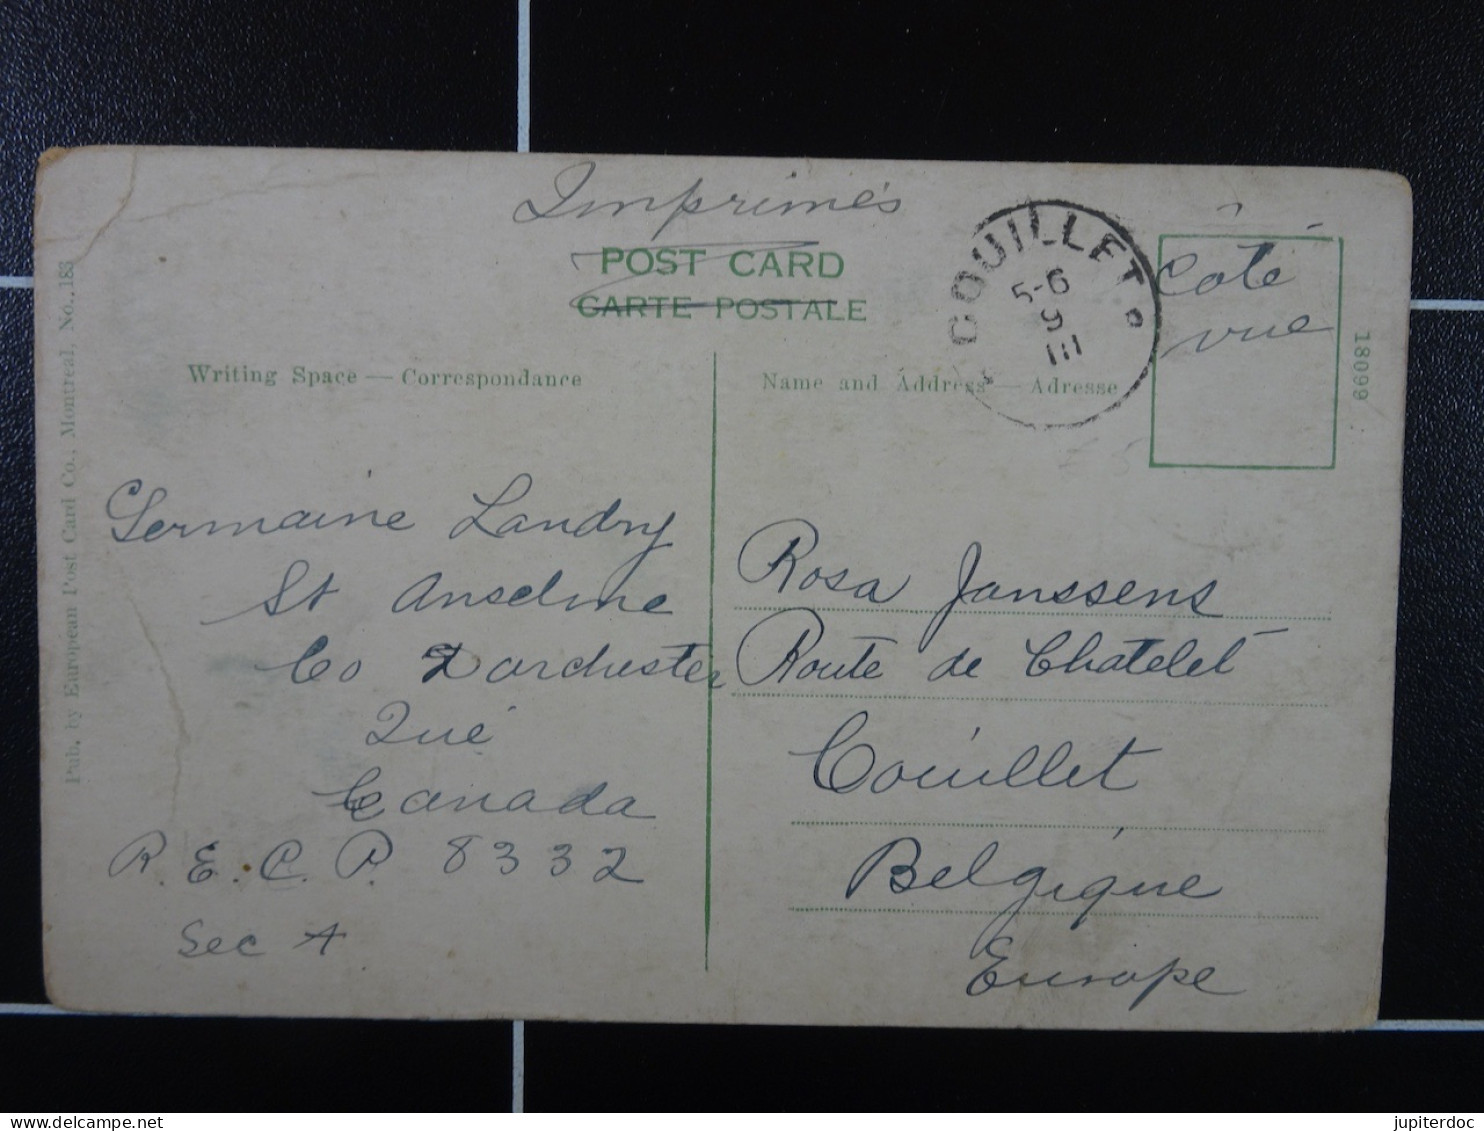 Imprimés
POST CARD
CARTE POSTALE
COUILLET
5-6
9
III
Coté
vue
18099
Writing Space — Correspondance
Name and Address — Adresse
Pub. by European Post Card Co., Montreal, No. 183
Germaine Landry
St Anselme
Co Dorchester
Qué
Canada
R. E. C. P. 8332
Sec A
Rosa Janssens
Route de Chatelet
Couillet
Belgique
Europe
jupiterdoc